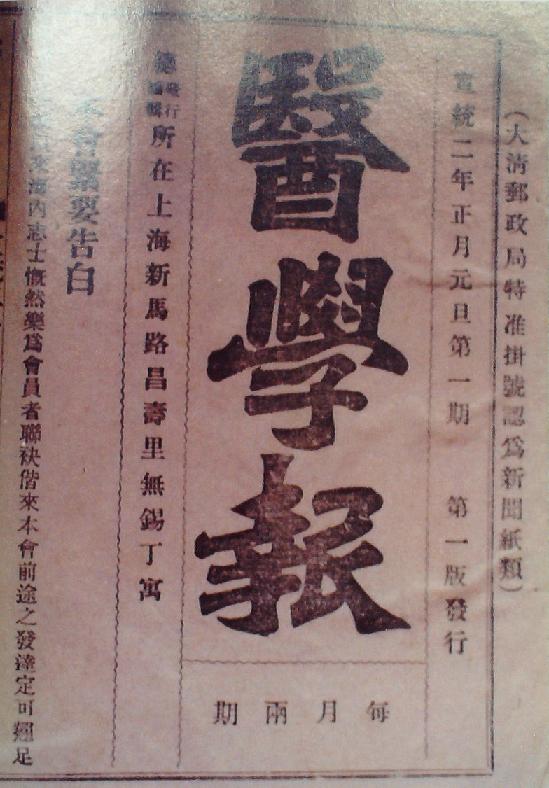 （大清郵政局特准掛號認爲新聞紙類）
宣統二年正月元旦第一期　第一版發行
醫學報
每月兩期
總發行編輯所在上海新馬路昌壽里無錫丁寓
本會緊要告白
海內志士慨然樂爲會員者聯袂偕來本會前途之發達定可翹足